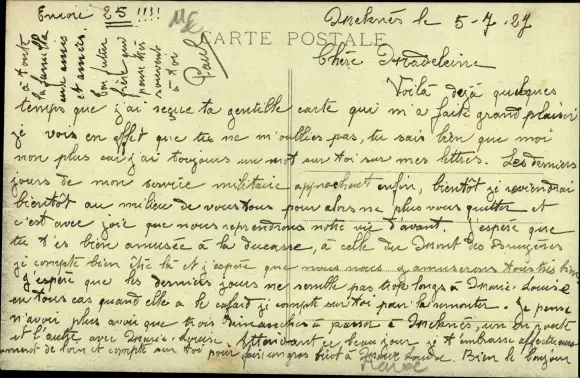 Encore 25 !!!!
Meknès le 5-7-27
CARTE POSTALE
Chère Madeleine
Voilà déjà quelques
temps que j'ai reçue ta gentille carte qui m'a fait grand plaisir
je vois en effet que tu ne m'oublies pas, tu sais bien que moi
non plus car j'ai toujours un mot sur toi sur mes lettres. Les derniers
jours de mon service militaire approchent enfin, bientôt je reviendrai
bientôt au milieu de vous tous pour alors ne plus vous quitter et
c'est avec joie que nous reprendrons notre vie d'avant. J'espère que
tu t'es bien amusée à la ducasse, à celle du Mont des Bruyères
je compte bien être là et j'espère que nous nous y amuserons tous très bien
J'espère que les derniers jours ne semble pas trop longs à Marie-Louise
en tous cas quand elle a le cafard je compte sur toi pour la remonter. Je pense
n'avoir plus avoir que trois dimanches à passer à Meknès, un en route
et l'autre avec Marie-Louise. Attendant ce beau jour je t'embrasse affectueu
sement de loin et compte sur toi pour faire un gros bécot à Marie Louise. Bien le bonjour
à toute
ta famille
aux amis
et amies.
Ton futur
frère qui
pense très
souvent
à toi
Paul
Maroc